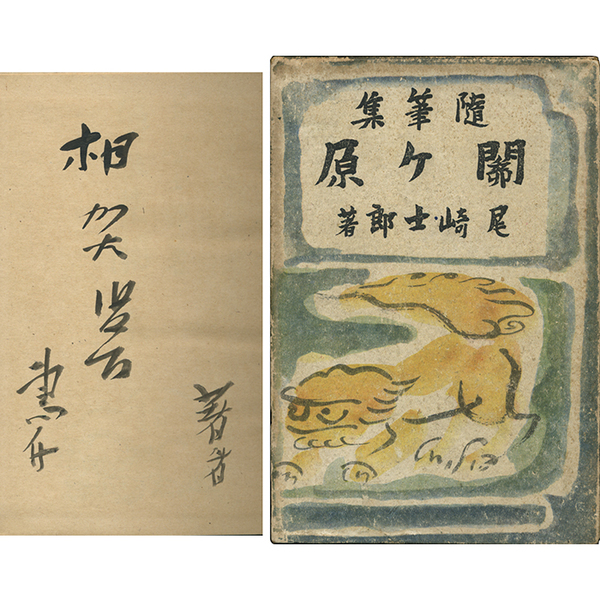 隨筆集
關ケ原
尾崎士郎著
著者
相賀